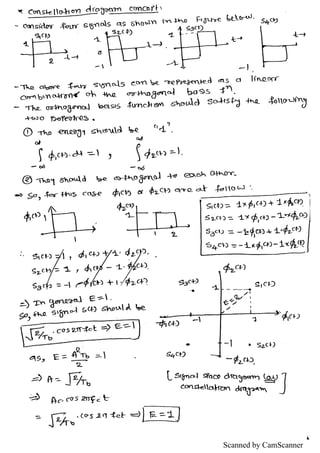 * Constellation diagram concept:-
- consider four signals as shown in the figure below.
S1(t) S2(t) S3(t) S4(t)
1 1 1
2 t→ t→ t→ t→
-1 -1 -1
- The above four signals can be represented as a linear
combinations of the orthogonal basis fⁿ.
- The orthogonal basis function should satisfy the following
two properties.
① The energy should be "1".
∞ ∞
∫ ϕ1(t).dt = 1 , ∫ ϕ2(t) = 1.
-∞ -∞
② They should be orthogonal to each other.
⇒ So, for this case ϕ1(t) & ϕ2(t) are at follow:
ϕ1(t) ϕ2(t)
1 1
1 1 2
S1(t) = 1×ϕ1(t) + 1×ϕ2(t)
S2(t) = 1×ϕ1(t) - 1×ϕ2(t)
S3(t) = -1×ϕ1(t) + 1·ϕ2(t)
S4(t) = -1×ϕ1(t) - 1×ϕ2(t)
∴ S1(t) = 1, ϕ1(t) + 1·ϕ2(t).
S2(t) = 1, ϕ1(t) - 1·ϕ2(t).
S3(t) = -1 ϕ1(t) + 1·ϕ2(t)
⇒ In general E=1.
So, the signal S(t) should be
√2/Tb .cos2πfct ⇒ E=1
as, E = A²Tb/2 = 1
⇒ A = √2/Tb
⇒ Ac.cos2πfct
= √2/Tb .cos2πfct ⇒ E=1
ϕ2(t)
S3(t) 1 S1(t)
E=2
-ϕ1(t) -1 1 ϕ1(t)
-1 S2(t)
S4(t) -ϕ2(t)
[Signal space diagram (or)
constellation diagram]
Scanned by CamScanner